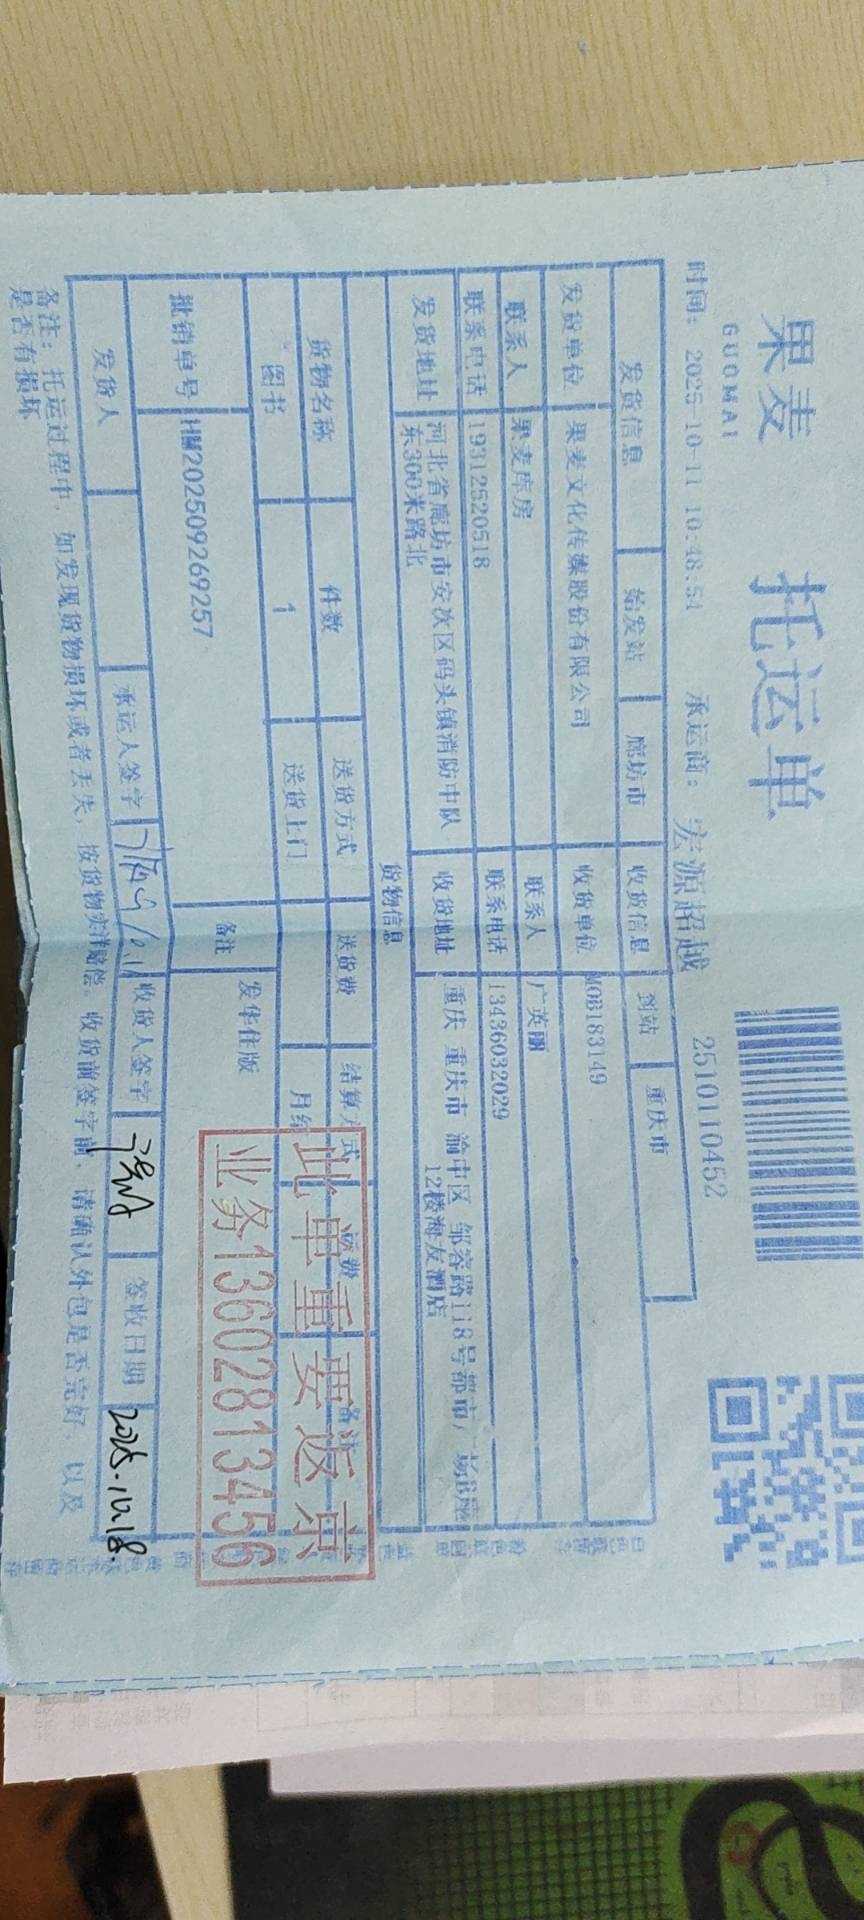 果麦
GUOMAI
托运单
时间: 2025-10-11 10:48:54 承运商: 宏源超越 2510110452
发货信息 始发站 廊坊市 收货信息 到站 重庆市
发货单位 果麦文化传媒股份有限公司 收货单位 MOB183149
联系人 果麦库房 联系人 广英丽
联系电话 19312520518 联系电话 13436032029
发货地址 河北省廊坊市安次区码头镇消防中队东300米路北 收货地址 重庆 重庆市 渝中区 邹容路118号都市广场B座12楼海友酒店
货物信息
货物名称 件数 送货方式 送货费 结算方式 运费 备注
图书 1 送货上门 月结
批销单号 HM202509269257 备注 发华住版
此单重要返京
业务13602813456
发货人 承运人签字 收货人签字 签收日期 2025.10.18.
备注: 托运过程中, 如发现货物损坏或者丢失, 按货物实洋赔偿。收货前签字前, 请确认外包是否完好, 以及
是否有损坏